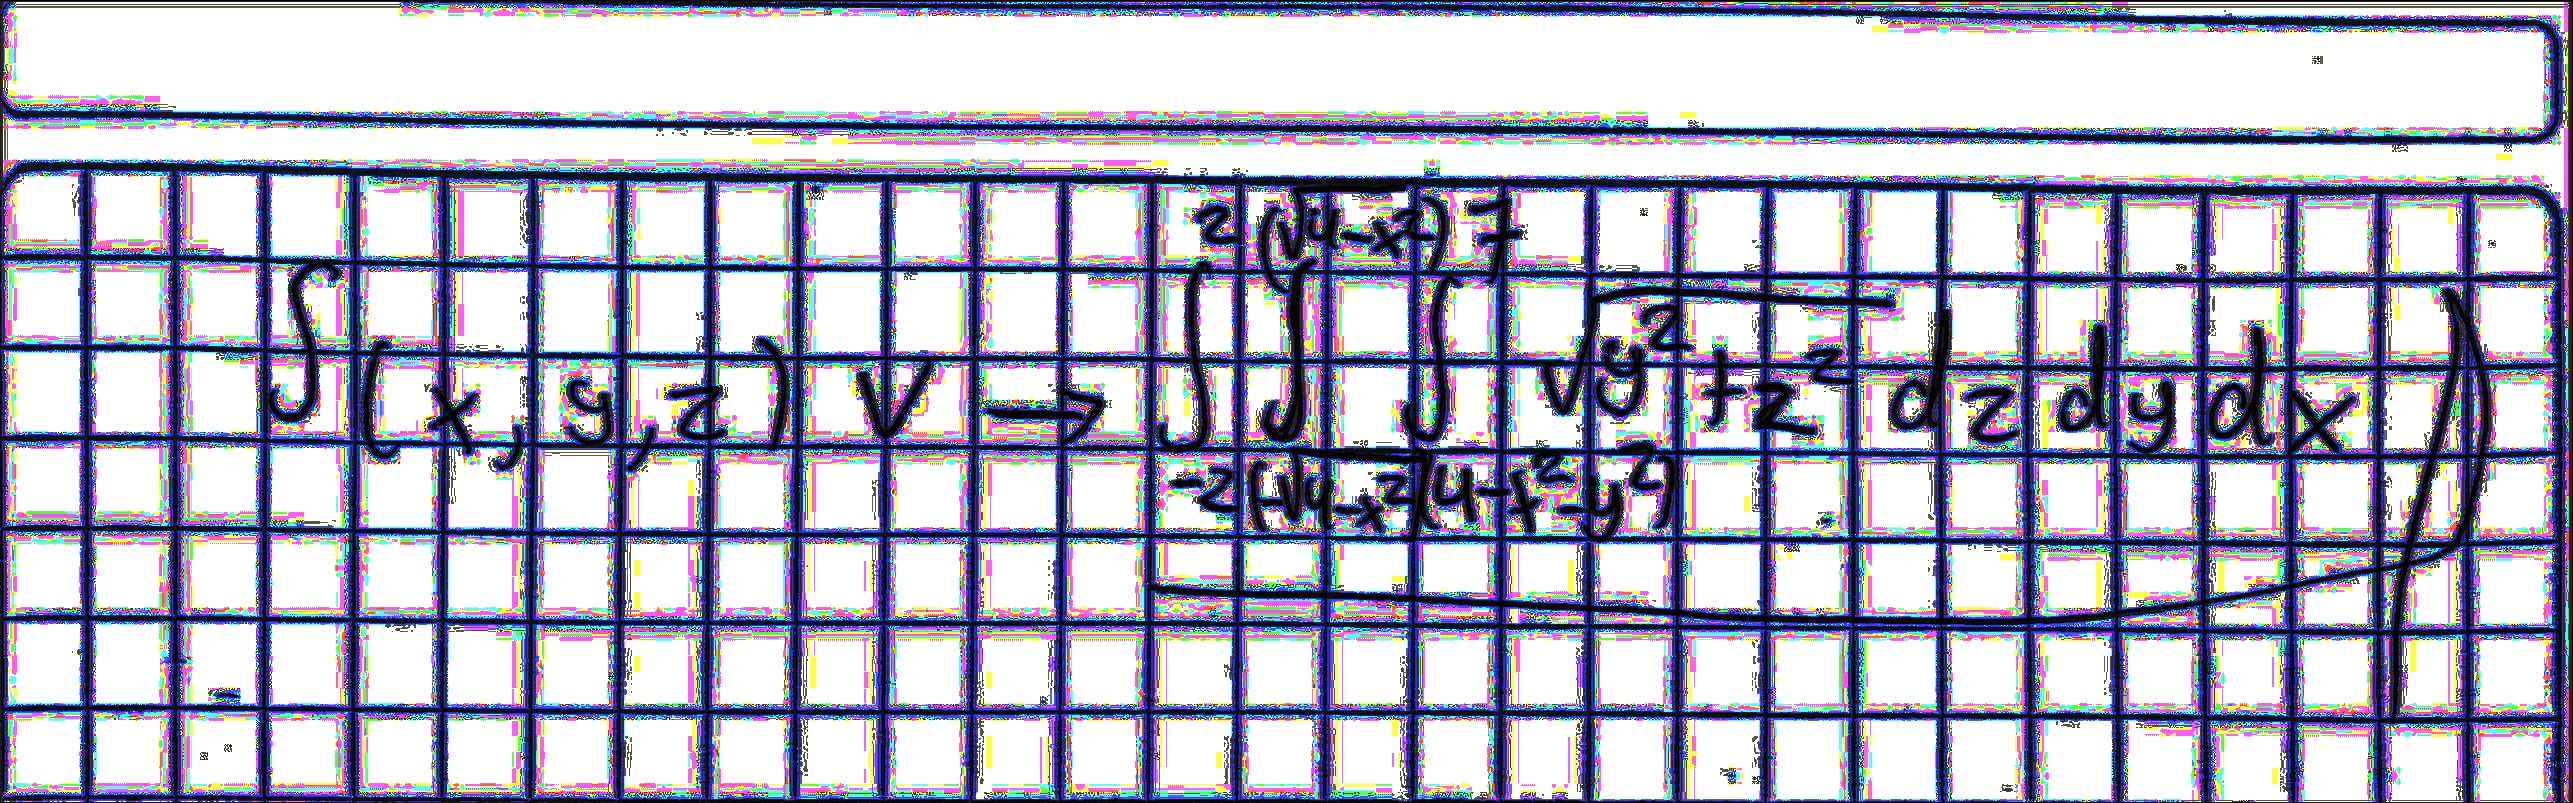 ∫(x, y, z) V → ∫_{-2}^{2} ∫_{(-√4-x²)}^{(√4-x²)} ∫_{(4-x²-y²)}^{7} √y²+z² dz dy dx)